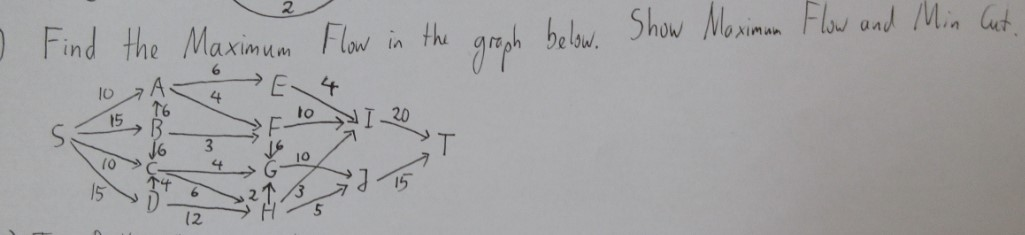 2
) Find the Maximum Flow in the graph below. Show Maximum Flow and Min Cut.
6
10 A 4 E 4
15 ↑6 10 I 20
S B 3 F T
↓6 ↓6
10 C 4 G 10 J 15
15 ↑4 6 2↑ 3
D 12 H 5